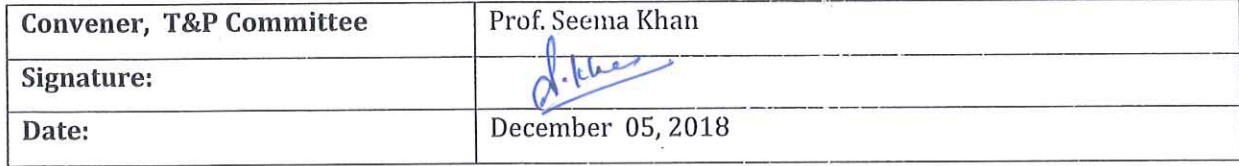 Convener, T&P Committee Prof. Seema Khan
Signature: S.Khan
Date: December 05, 2018